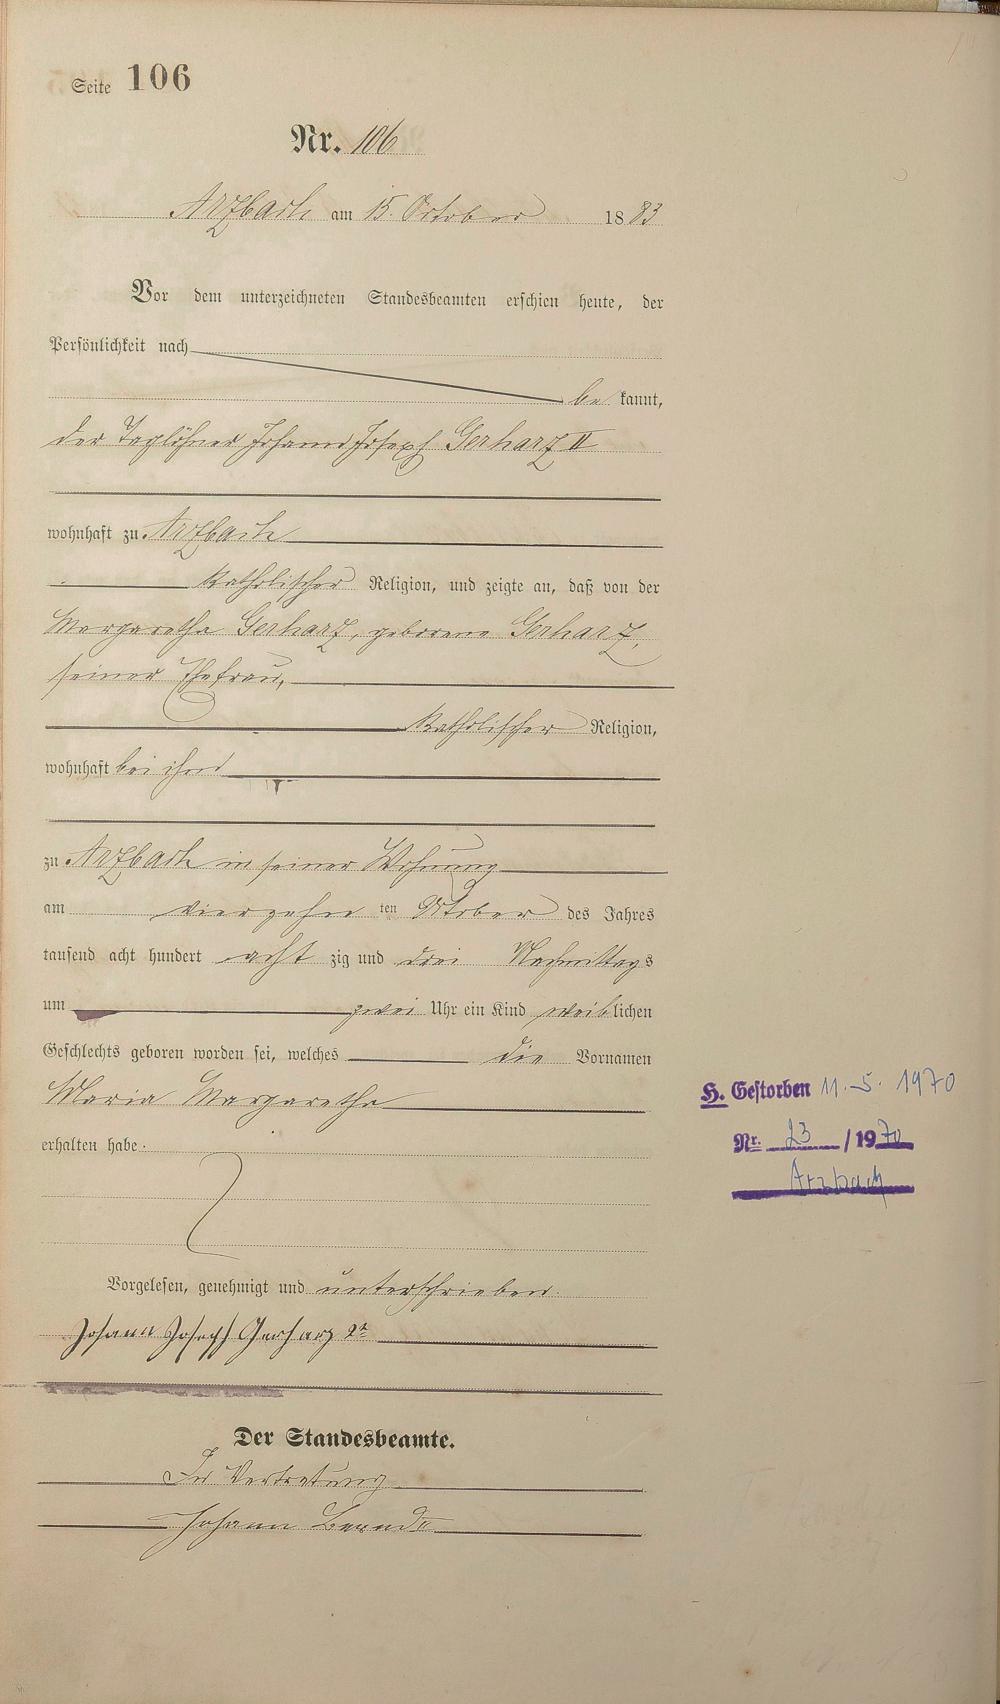 Seite 106
Nr. 106
Arzbach am 15. October 1883
Vor dem unterzeichneten Standesbeamten erschien heute, der
Persönlichkeit nach
be kannt,
der Taglöhner Johann Joseph Gerharz II
wohnhaft zu Arzbach
katholischer Religion, und zeigte an, daß von der
Margaretha Gerharz, geborene Gerharz,
seiner Ehefrau,
katholischer Religion,
wohnhaft bei ihm
zu Arzbach in seiner Wohnung
am vierzehn ten October des Jahres
tausend acht hundert acht zig und drei Nachmittags
um zwei Uhr ein Kind weiblichen
Geschlechts geboren worden sei, welches die Vornamen
Maria Margaretha
erhalten habe.
H. Gestorben 11. 5. 1970
Nr. 23 / 1970
Arzbach
Vorgelesen, genehmigt und unterschrieben.
Johann Joseph Gerharz 2r
Der Standesbeamte.
In Vertretung
Johann